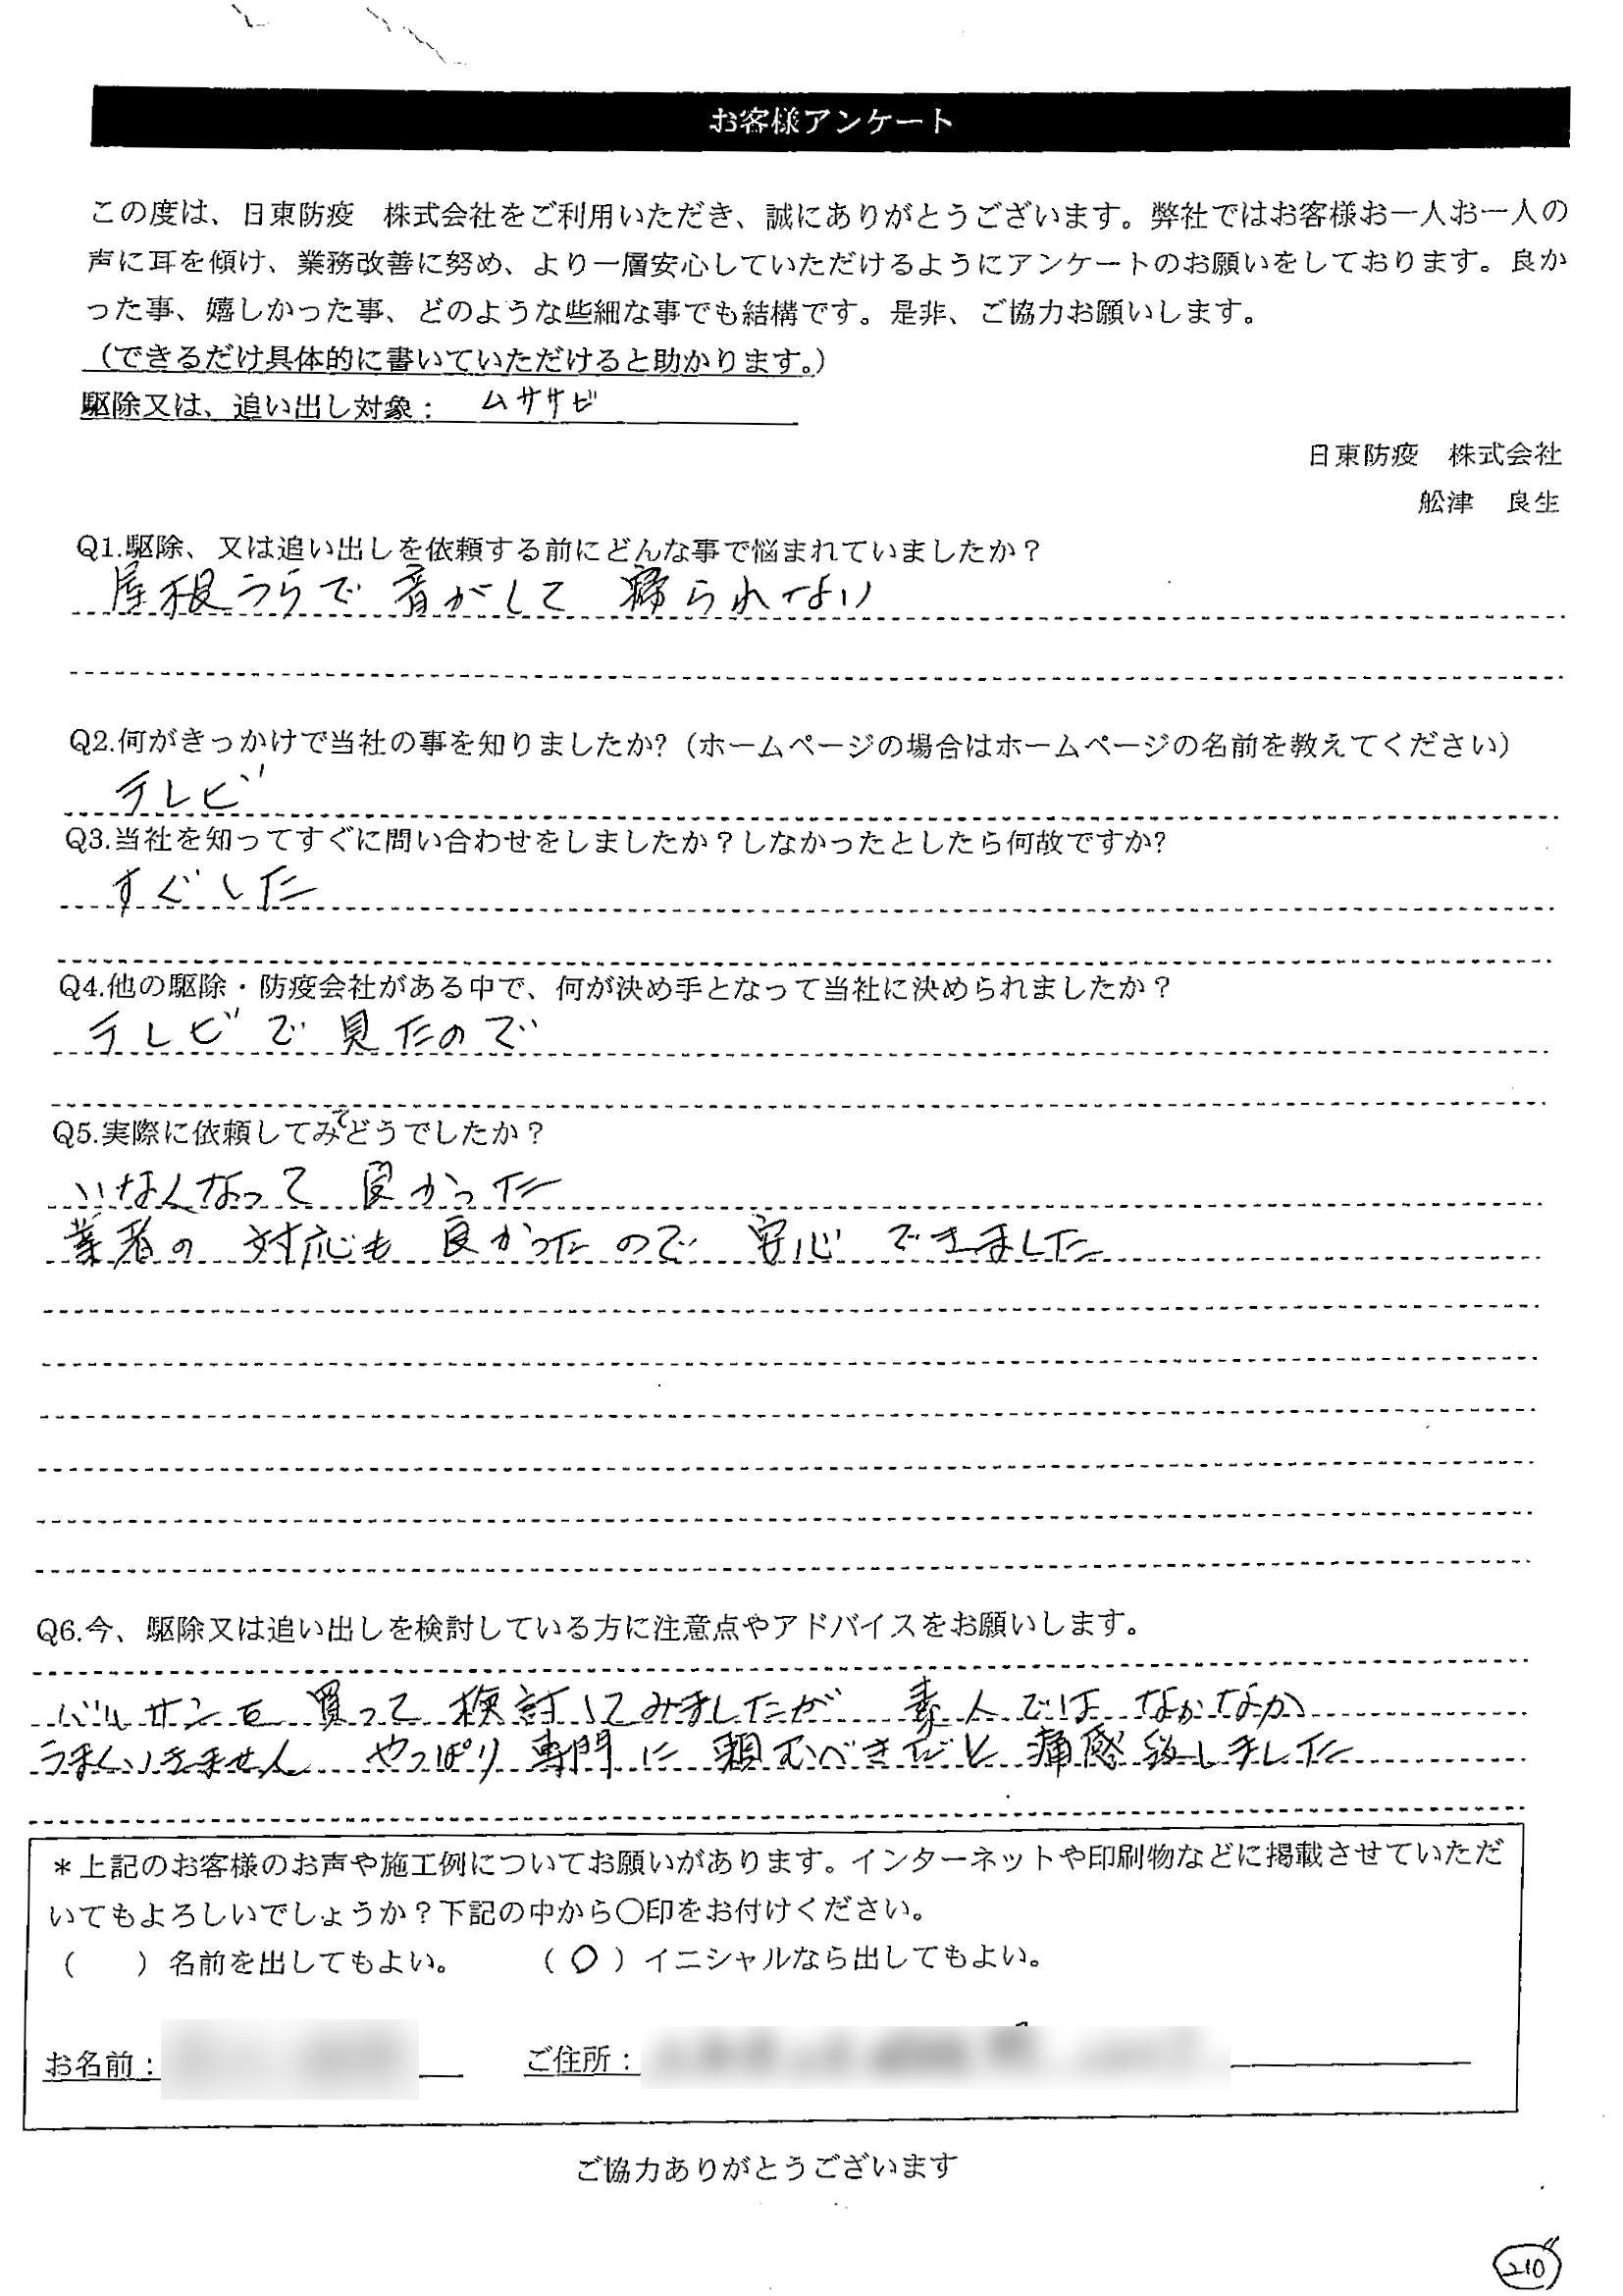 お客様アンケート
この度は、日東防疫　株式会社をご利用いただき、誠にありがとうございます。弊社ではお客様お一人お一人の
声に耳を傾け、業務改善に努め、より一層安心していただけるようにアンケートのお願いをしております。良か
った事、嬉しかった事、どのような些細な事でも結構です。是非、ご協力お願いします。
（できるだけ具体的に書いていただけると助かります。）
駆除又は、追い出し対象：　ムササビ
日東防疫　株式会社
舩津　良生
Q1.駆除、又は追い出しを依頼する前にどんな事で悩まれていましたか？
屋根うらで音がして　寝られない
Q2.何がきっかけで当社の事を知りましたか?（ホームページの場合はホームページの名前を教えてください）
テレビ
Q3.当社を知ってすぐに問い合わせをしましたか？しなかったとしたら何故ですか?
すぐした
Q4.他の駆除・防疫会社がある中で、何が決め手となって当社に決められましたか？
テレビで見たので
Q5.実際に依頼してみてどうでしたか？
いなくなって　良かった
業者の　対応も　良かったので　安心　できました
Q6.今、駆除又は追い出しを検討している方に注意点やアドバイスをお願いします。
バルサンを買って検討してみましたが　素人では　なかなか
うまくいきません　やっぱり専門に頼むべきだと痛感致しました
＊上記のお客様のお声や施工例についてお願いがあります。インターネットや印刷物などに掲載させていただ
いてもよろしいでしょうか？下記の中から〇印をお付けください。
（　　）名前を出してもよい。　　（〇）イニシャルなら出してもよい。
お名前：　ご住所：
ご協力ありがとうございます
210